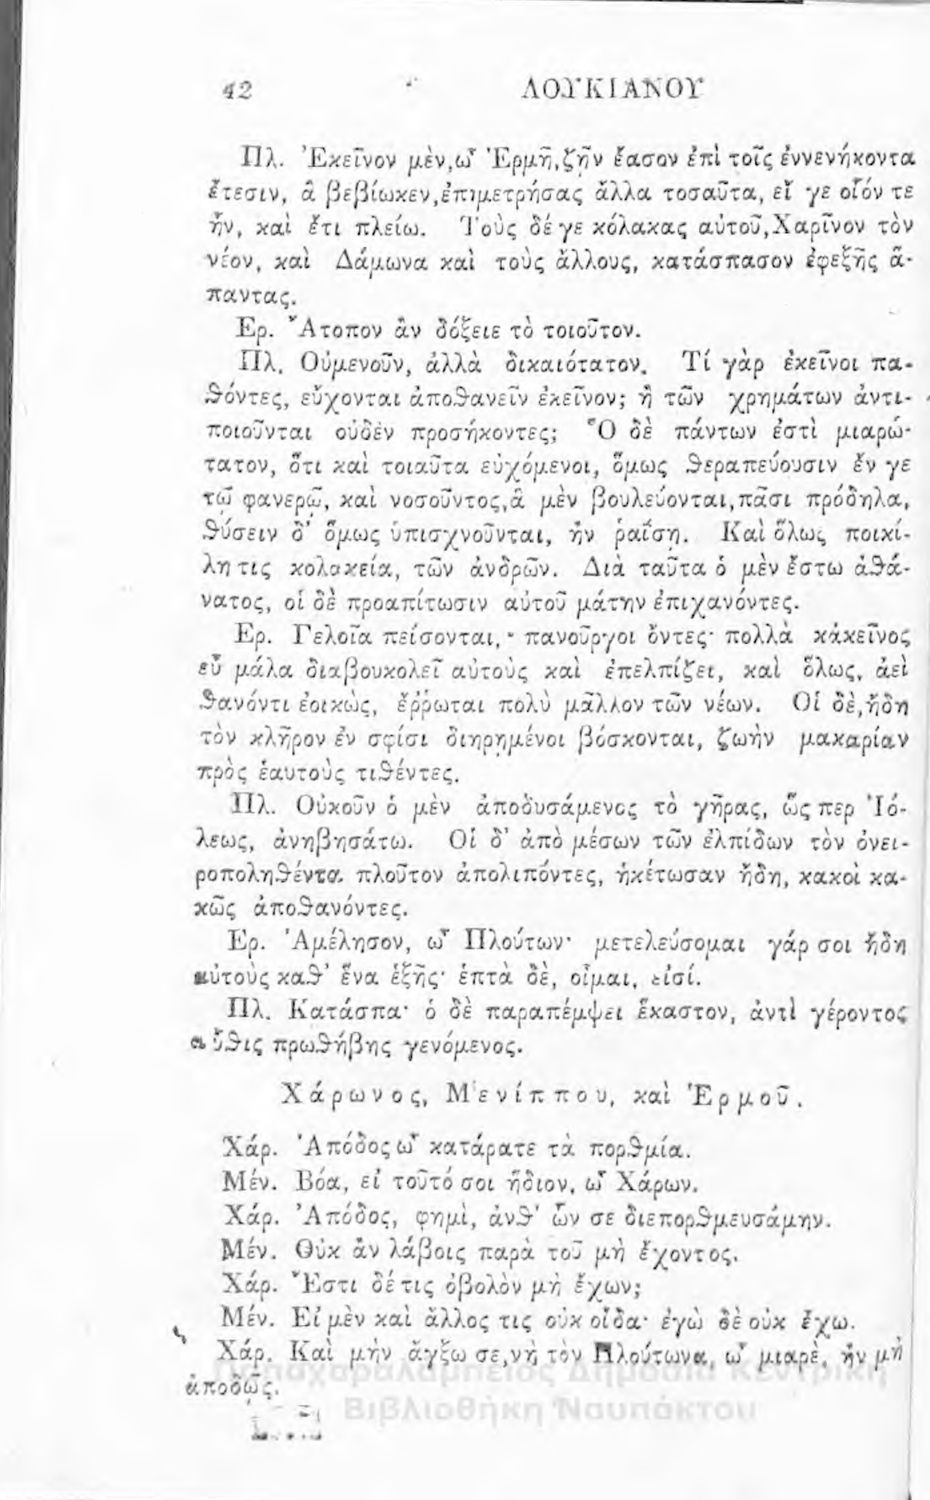 42 ΛΟΥΚΙΑΝΟΥ
Πλ. Ἐκεῖνον μὲν, ὦ Ἑρμῆ, ζῆν ἔασον ἐπὶ τοῖς ἐννενήκοντα
ἔτεσιν, ἃ βεβίωκεν, ἐπιμετρήσας ἄλλα τοσαῦτα, εἴ γε οἷόν τε
ἦν, καὶ ἔτι πλείω. Τοὺς δέ γε κόλακας αὐτοῦ, Χαρῖνον τὸν
νέον, καὶ Δάμωνα καὶ τοὺς ἄλλους, κατάσπασον ἐφεξῆς ἅ-
παντας.
Ερ. Ἄτοπον ἂν δόξειε τὸ τοιοῦτον.
Πλ. Οὐμενοῦν, ἀλλὰ δικαιότατον. Τί γὰρ ἐκεῖνοι πα-
θόντες, εὔχονται ἀποθανεῖν ἐκεῖνον; ἢ τῶν χρημάτων ἀντι-
ποιοῦνται οὐδὲν προσήκοντες; Ὃ δὲ πάντων ἐστὶ μιαρώ-
τατον, ὅτι καὶ τοιαῦτα εὐχόμενοι, ὅμως θεραπεύουσιν ἔν γε
τῷ φανερῷ, καὶ νοσοῦντος, ἃ μὲν βουλεύονται, πᾶσι πρόδηλα,
θύσειν δ' ὅμως ὑπισχνοῦνται, ἢν ῥαΐσῃ. Καὶ ὅλως ποικί-
λη τις κολακεία, τῶν ἀνδρῶν. Διὰ ταῦτα ὁ μὲν ἔστω ἀθά-
νατος, οἱ δὲ προαπίτωσιν αὐτοῦ μάτην ἐπιχανόντες.
Ερ. Γελοῖα πείσονται, πανοῦργοι ὄντες· πολλὰ κἀκεῖνος
εὖ μάλα διαβουκολεῖ αὐτοὺς καὶ ἐπελπίζει, καὶ ὅλως, ἀεὶ
θανόντι ἐοικὼς, ἔῤῥωται πολὺ μᾶλλον τῶν νέων. Οἱ δὲ, ἤδη
τὸν κλῆρον ἐν σφίσι διῃρημένοι βόσκονται, ζωὴν μακαρίαν
πρὸς ἑαυτοὺς τιθέντες.
Πλ. Οὐκοῦν ὁ μὲν ἀποδυσάμενος τὸ γῆρας, ὥς περ Ἰό-
λεως, ἀνηβησάτω. Οἱ δ' ἀπὸ μέσων τῶν ἐλπίδων τὸν ὀνει-
ροποληθέντα πλοῦτον ἀπολιπόντες, ἡκέτωσαν ἤδη, κακοὶ κα-
κῶς ἀποθανόντες.
Ερ. Ἀμέλησον, ὦ Πλούτων· μετελεύσομαι γάρ σοι ἤδη
αὐτοὺς καθ' ἕνα ἑξῆς· ἑπτὰ δὲ, οἶμαι, εἰσί.
Πλ. Κατάσπα· ὁ δὲ παραπέμψει ἕκαστον, ἀντὶ γέροντος
αὖθις πρωθήβης γενόμενος.
Χάρωνος, Μενίππου, καὶ Ἑρμοῦ.
Χάρ. Ἀπόδος ὦ κατάρατε τὰ πορθμία.
Μέν. Βόα, εἰ τοῦτό σοι ἥδιον, ὦ Χάρων.
Χάρ. Ἀπόδος, φημὶ, ἀνθ' ὧν σε διεπορθμευσάμην.
Μέν. Οὐκ ἂν λάβοις παρὰ τοῦ μὴ ἔχοντος.
Χάρ. Ἔστι δέ τις ὀβολὸν μὴ ἔχων;
Μέν. Εἰ μὲν καὶ ἄλλος τις οὐκ οἶδα· ἐγὼ δὲ οὐκ ἔχω.
Χάρ. Καὶ μὴν ἄγξω σε, νὴ τὸν Πλούτωνα, ὦ μιαρὲ, ἢν μὴ
ἀποδῷς.
Παπαχαραλάμπειος Δημόσια Κεντρική
Βιβλιοθήκη Ναυπάκτου